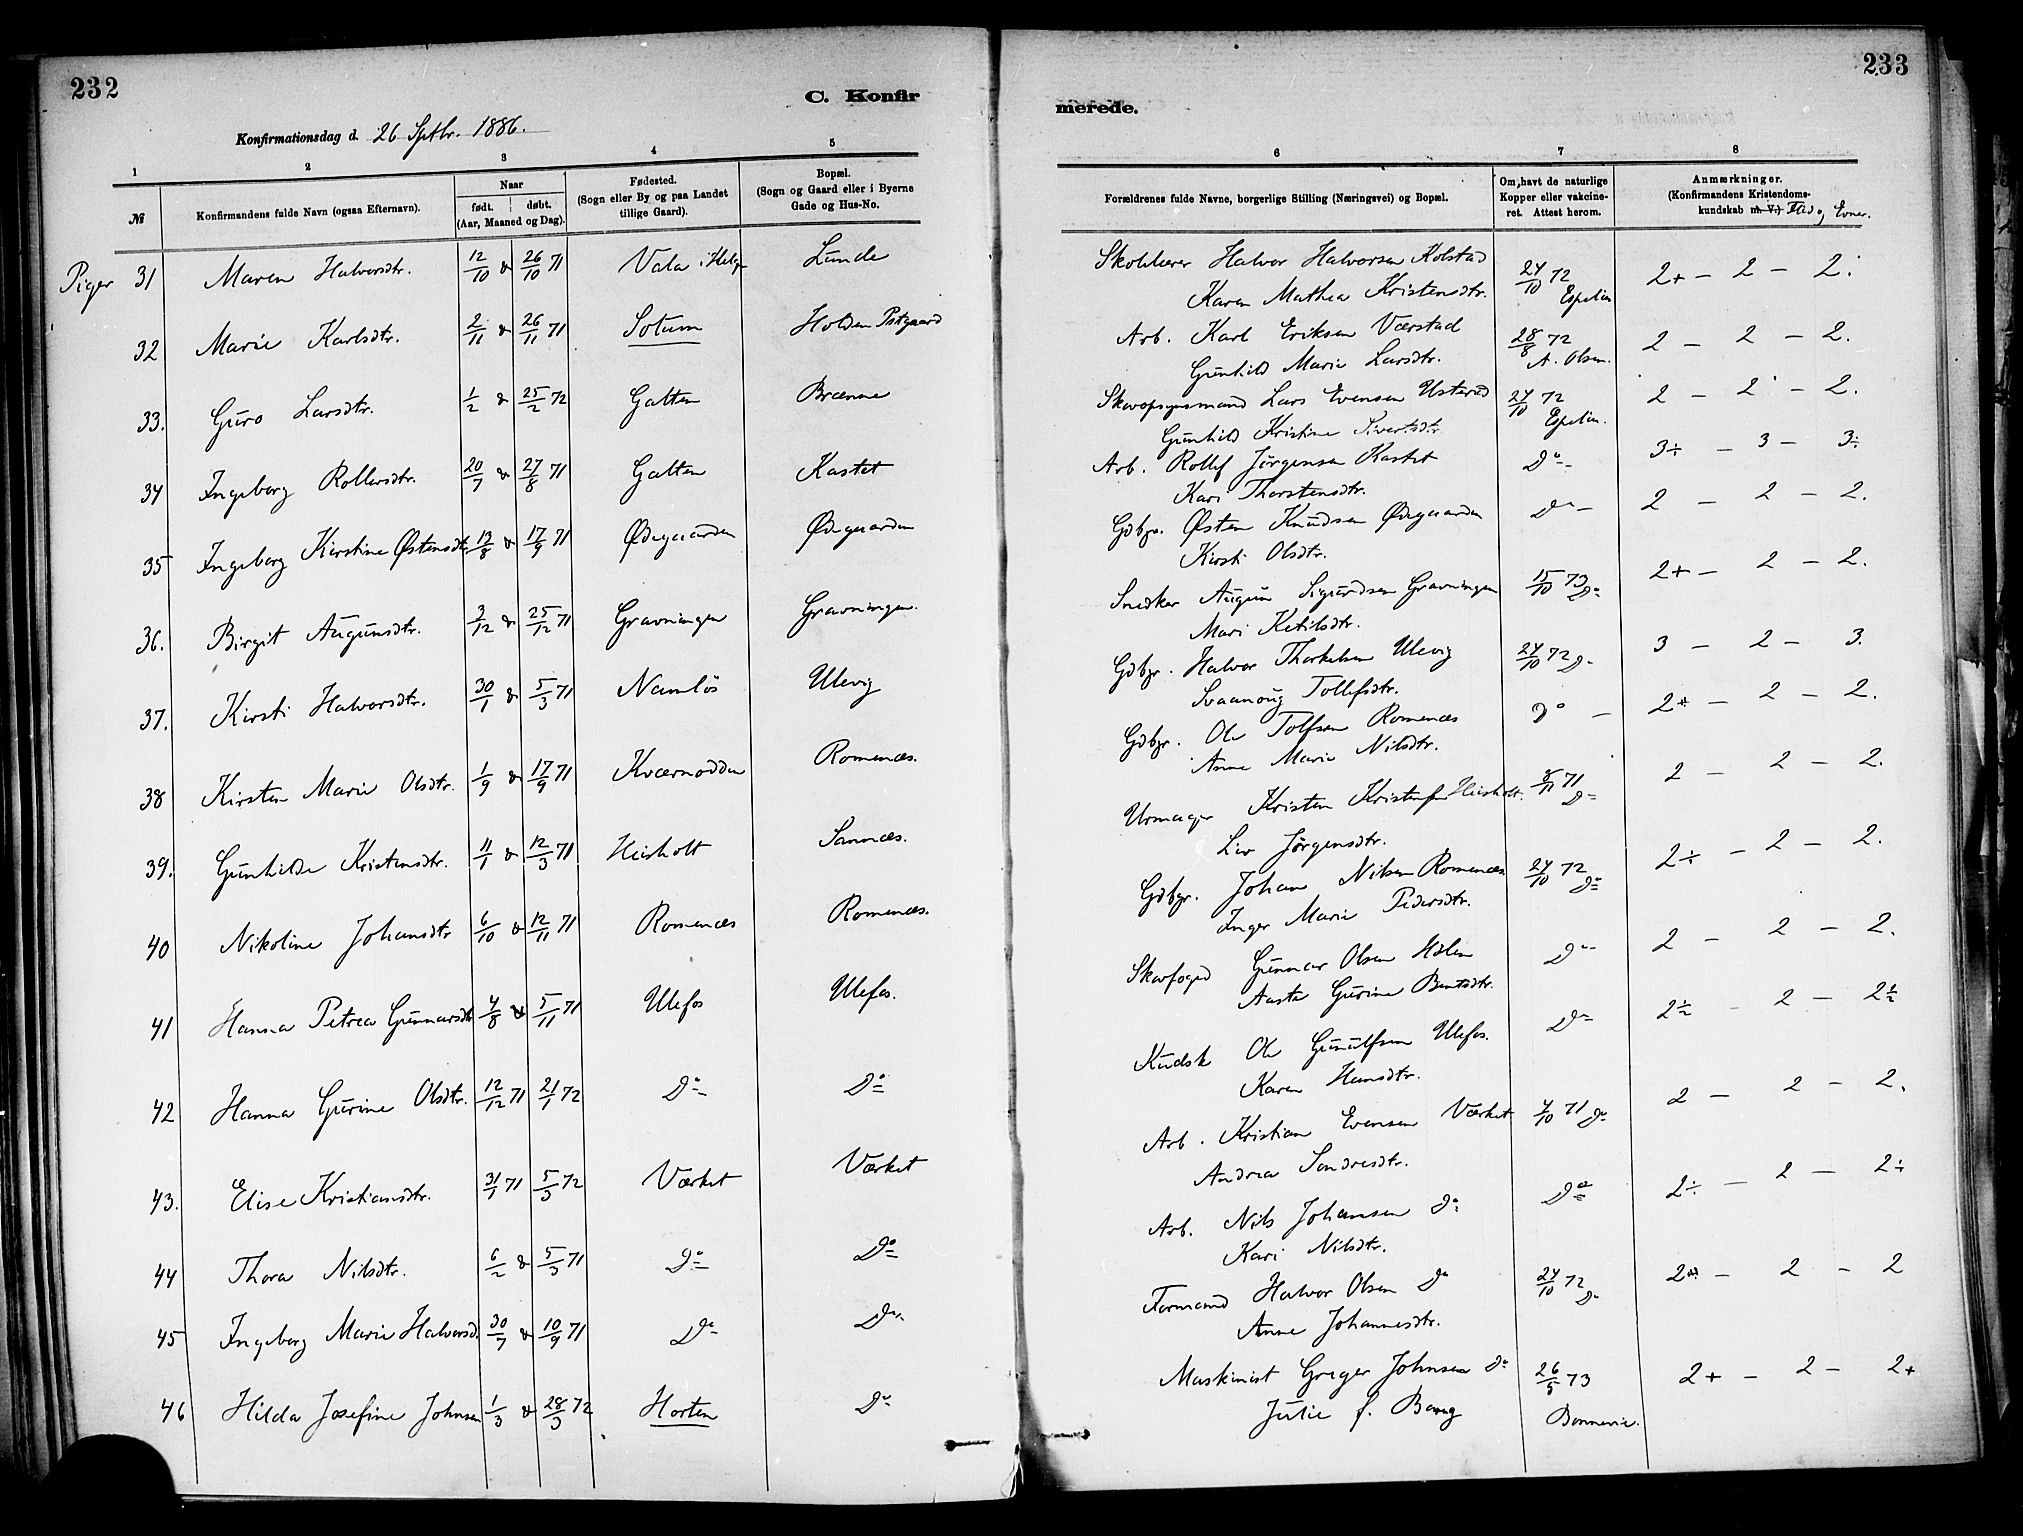 232
C. Konfir
Konfirmationsdag d. 26 Sptbr. 1886.
1 2 3 4 5
№
Konfirmandens fulde Navn (ogsaa Efternavn).
Naar
født. døbt.
(Aar, Maaned og Dag).
Fødested.
(Sogn eller By og paa Landet
tillige Gaard).
Bopæl.
(Sogn og Gaard eller i Byerne
Gade og Hus-No.
Piger 31 Maren Halvorsdtr. 12/10 & 26/10 71 Vala i Helg Lunde
32 Marie Karlsdtr. 2/11 & 26/11 71 Sotum Holden Pstgaard
33. Guro Larsdtr. 1/2 & 25/2 72 Galten Brænne
34 Ingeborg Rollefsdtr. 20/7 & 27/8 71 Galten Kastet
35 Ingeborg Kirstine Østensdtr 13/8 & 17/9 71 Ødegaarden Ødegaarden
36. Birgit Augunsdtr. 3/12 & 25/12 71 Gravningen Gravningen.
37. Kirsti Halvorsdtr. 30/1 & 5/3 71 Namløs Ulevig
38 Kirsten Marie Olsdtr. 1/9 & 17/9 71 Kværnodden Romenæs.
39. Gunhilde Kristensdtr. 11/1 & 12/3 71 Heisholt Sannæs.
40 Nikoline Johansdtr 6/10 & 12/11 71 Romenæs Romenæs.
41 Hanna Petrea Gunnarsdtr 4/8 & 5/11 71 Ulefos Ulefos.
42 Hanna Gurine Olsdtr. 12/12 71 21/1 72 Do Do
43. Elise Kristiansdtr. 31/1 71 5/3 72 Værket Værket
44 Thora Nilsdtr. 6/2 & 5/3 71 Do Do
45 Ingeborg Marie Halvorsd. 30/7 & 10/9 71 Do Do
46 Hilda Josefine Johnsen 1/3 & 28/3 72 Horten Do
233
merede.
6 7 8
Forældrenes fulde Navne, borgerlige Stilling (Næringsvei) og Bopæl.
Om havt de naturlige
Kopper eller vakcine-
ret. Attest herom.
Anmærkninger.
(Konfirmandens Kristendoms-
kundskab m. V.) Flid og Evner.
Skolelærer Halvor Halvorsen Kolstad 24/10 72 2+ – 2 – 2.
Karen Mathea Kristensdtr. Espelin
Arb. Karl Eriksen Værstad 28/8 72 2 – 2 – 2.
Gunhild Marie Larsdtr. A. Olsen.
Skovopsynsmand Lars Evensen Usterud 24/10 72 2 – 2 – 2.
Gunhild Kristine Sivertsdtr Espelin.
Arb. Rollef Jørgensen Kastet Do 3÷ – 3 – 3÷
Kari Thorstensdtr.
Gdbgr. Østen Knudsen Ødegaarden Do – 2 – 2 – 2.
Kirsti Olsdtr.
Snedker Augun Sigurdsen Gravningen 15/10 73 Do 2+ – 2 – 2.
Mari Ketilsdtr.
Gdbgr. Halvor Thorkelsen Ulevig 24/10 72 Do 3 – 2 – 3.
Svaanoug Tollefsdtr.
Gdbgr. Ole Tolfsen Romenæs Do – 2+ – 2 – 2.
Anne Marie Nilsdtr.
Urmager Kristen Kristensen Heisholt. 8/11 71 Do 2 – 2 – 2.
Liv Jørgensdtr.
Gdbgr. Johan Nilsen Romenæs 24/10 72 Do 2÷ – 2 – 2.
Inger Marie Pedersdtr.
Skovfoged Gunnar Olsen Holen Do 2 – 2 – 2.
Aaste Gurine Bentsdtr.
Kudsk Ole Gunulfsen Ulefos. Do 2÷ – 2 – 2÷
Karen Hansdtr.
Arb. Kristian Evensen Værket 4/10 71 Do 2 – 2 – 2.
Andrea Sondresdtr.
Arb. Nils Johansen Do Do 2÷ – 2 – 2÷
Kari Nilsdtr.
Formand Halvor Olsen Do 24/10 72 Do 2+ – 2 – 2
Anne Johannesdtr.
Maskinist Greger Johnsen Do 26/5 73 2+ – 2 – 2+
Julie f. Bang Bonnevie.